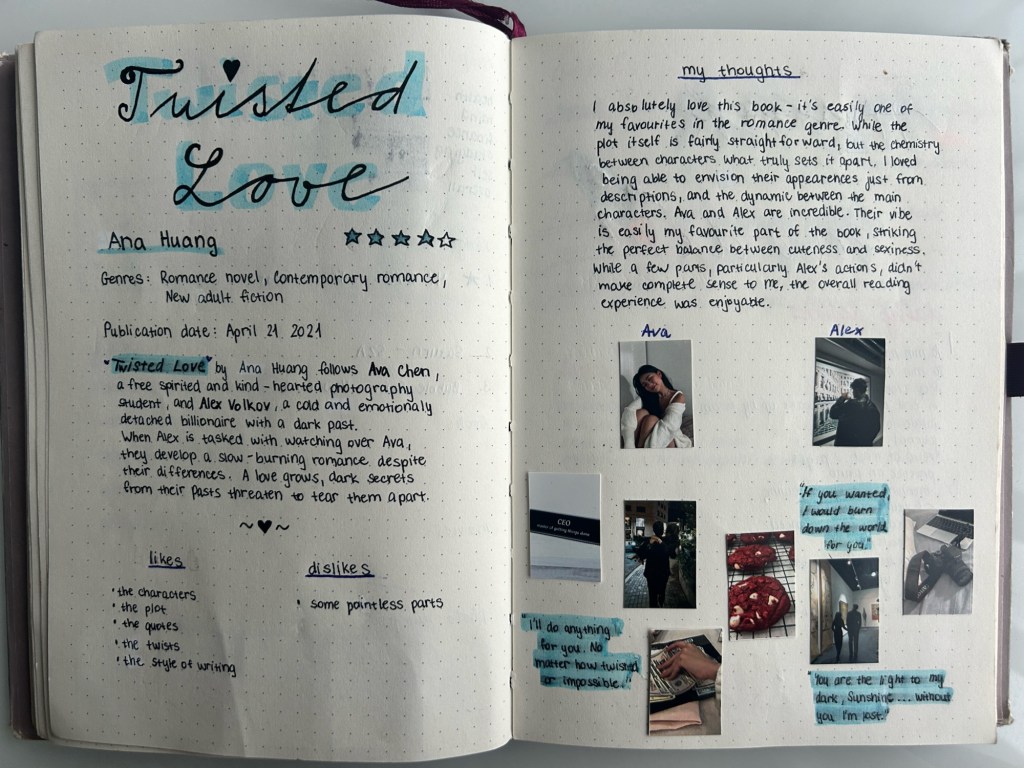 Twisted
Love
Ana Huang
Genres: Romance novel, Contemporary romance,
New adult fiction
Publication date: April 21 2021
"Twisted Love" by Ana Huang follows Ava Chen,
a free spirited and kind-hearted photography
student, and Alex Volkov, a cold and emotionally
detached billionaire with a dark past.
When Alex is tasked with watching over Ava,
they develop a slow-burning romance despite
their differences. A love grows, dark secrets
from their pasts threaten to tear them apart.
likes
• the characters
• the plot
• the quotes
• the twists
• the style of writing
dislikes
• some pointless parts
my thoughts
I absolutely love this book - it's easily one of
my favourites in the romance genre. While the
plot itself is fairly straightforward, but the chemistry
between characters what truly sets it apart. I loved
being able to envision their appearences just from
descriptions, and the dynamic between the main
characters. Ava and Alex are incredible. Their vibe
is easily my favourite part of the book, striking
the perfect balance between cuteness and sexiness.
While a few parts, particularly Alex's actions, didn't
make complete sense to me, the overall reading
experience was enjoyable.
Ava
Alex
CEO
master of getting things done
"If you wanted,
I would burn
down the world
for you."
"I'll do anything
for you. No
matter how twisted
or impossible."
"You are the light to my
dark, Sunshine... without
you I'm lost."